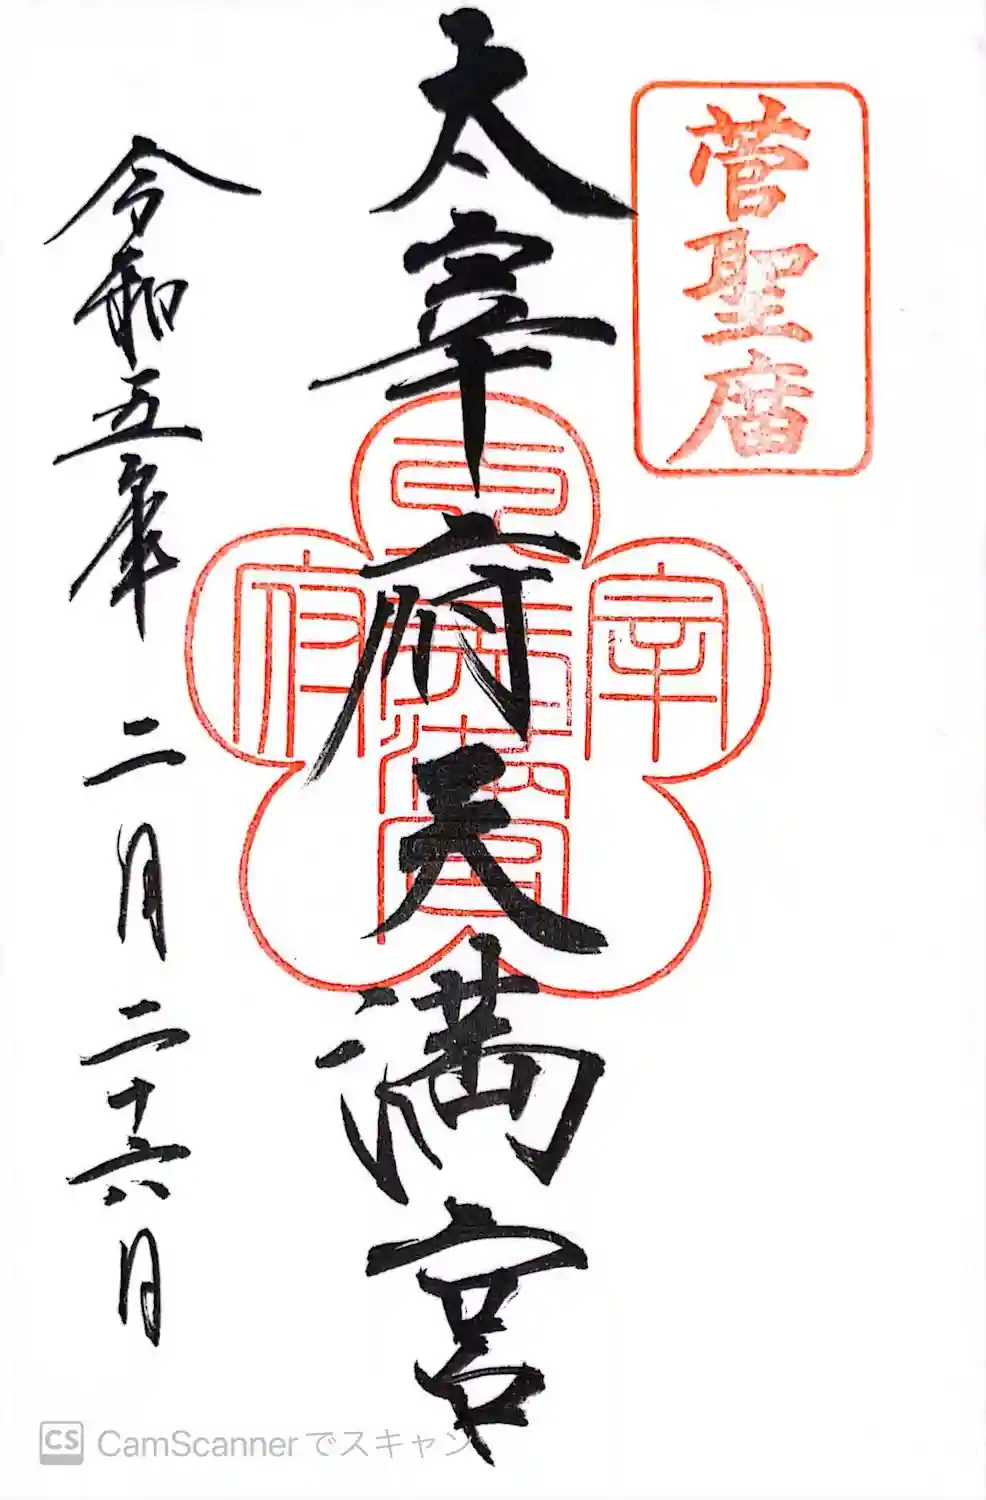 菅聖庿
太宰府天満宮
太宰府天満宮
令和五年二月二十六日
CS CamScannerでスキャン